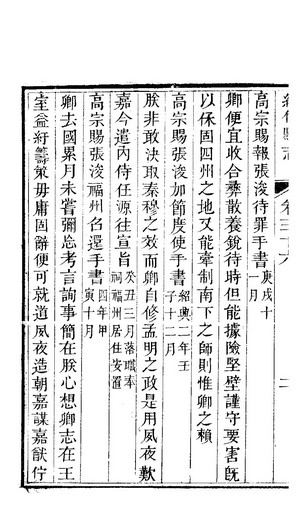 高宗賜報張浚待罪手書庚戌十一月
卿便宜收合彝散養銳待時但能據險堅壁謹守要害旣
以係固四州之地又能牽制南下之師則惟卿之賴
高宗賜張浚加節度使手書紹興二年壬子十二月
朕非敢決取秦穆之效而卿自修孟明之政是用夙夜歎
嘉今遣內侍任源往宣旨癸丑三月落職奉祠福州居住安置
高宗賜張浚福州召還手書四年甲寅十月
卿去國累月未嘗彌忘考言詢事簡在朕心想卿志在王
室益紆籌策毋庸固辭便可就道夙夜造朝嘉謀嘉猷佇